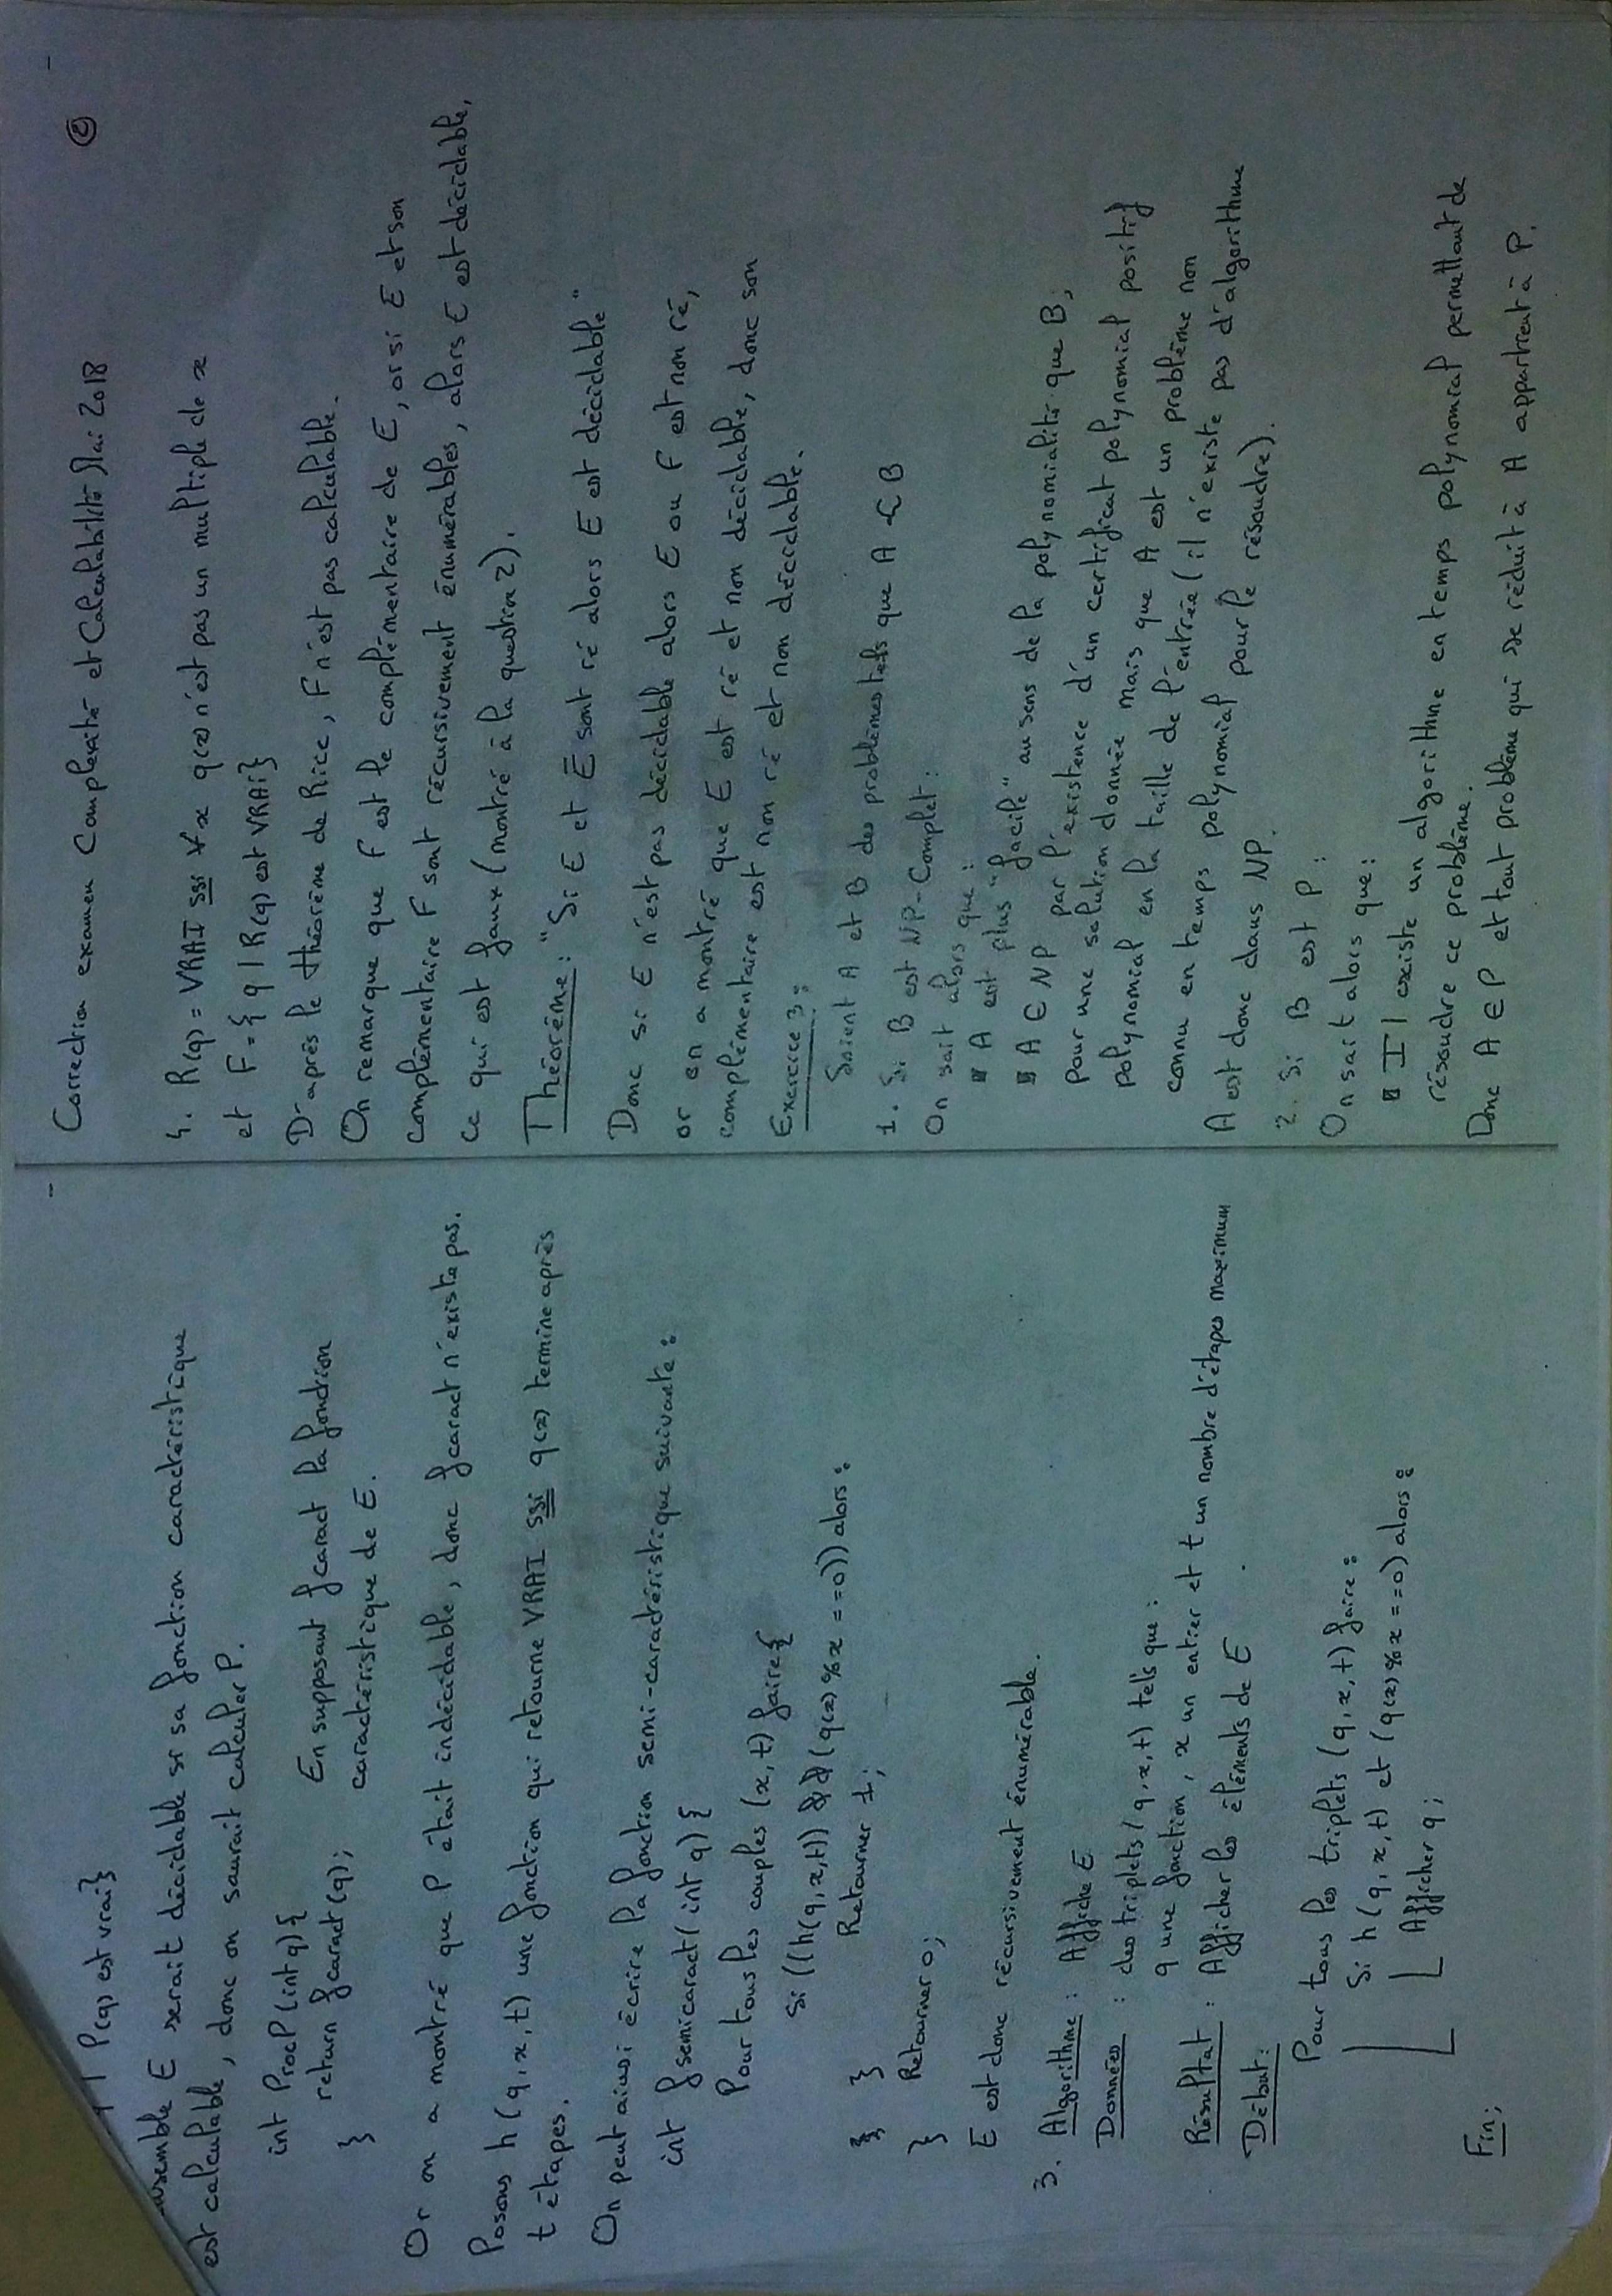 q | P(q) est vrai}
ensemble E serait décidable si sa fonction caractéristique
est calculable, donc on saurait calculer P.
int ProcP(int q) {
return fcaract(q);
}
En supposant fcaract la fonction
caractéristique de E.
Or on a montré que P était indécidable, donc fcaract n'existe pas.
Posons h(q,x,t) une fonction qui retourne VRAI ssi q(x) termine après
t étapes.
On peut ainsi écrire la fonction semi-caractéristique suivante :
int fsemicaract(int q) {
Pour tous les couples (x,t) faire {
Si ((h(q,x,t)) && (q(x)%x==0)) alors :
Retourner 1;
} }
Retourner 0;
}
E est donc récursivement énumérable.
3. Algorithme : Affiche E
Données : des triplets (q,x,t) tels que :
q une fonction, x un entier et t un nombre d'étapes maximum
Résultat : Afficher les éléments de E.
Début :
Pour tous les triplets (q,x,t) faire :
Si h(q,x,t) et (q(x)%x==0) alors :
Afficher q;
Fin;
Correction examen Complexité et Calculabilité Mai 2018
②
4. R(q) = VRAI ssi ∀x q(x) n'est pas un multiple de x
et F = {q | R(q) est VRAi}
D'après le théorème de Rice, F n'est pas calculable.
On remarque que F est le complémentaire de E, or si E et son
complémentaire F sont récursivement énumérables, alors E est décidable,
ce qui est faux (montré à la question 2).
Théorème : "Si E et Ē sont ré alors E est décidable"
Donc si E n'est pas décidable alors E ou F est non ré,
or on a montré que E est ré et non décidable, donc son
complémentaire est non ré et non décidable.
Exercice 3 :
Soient A et B des problèmes tels que A ≺ B
1. Si B est NP-Complet :
On sait alors que :
▪ A est plus "facile" au sens de la polynomialité que B,
▪ A ∈ NP par l'existence d'un certificat polynomial positif
pour une solution donnée mais que A est un problème non
polynomial en la taille de l'entrée (il n'existe pas d'algorithme
connu en temps polynomial pour le résoudre).
A est donc dans NP.
2. Si B est P :
On sait alors que :
▪ Il existe un algorithme en temps polynomial permettant de
résoudre ce problème.
Donc A ∈ P et tout problème qui se réduit à A appartient à P.